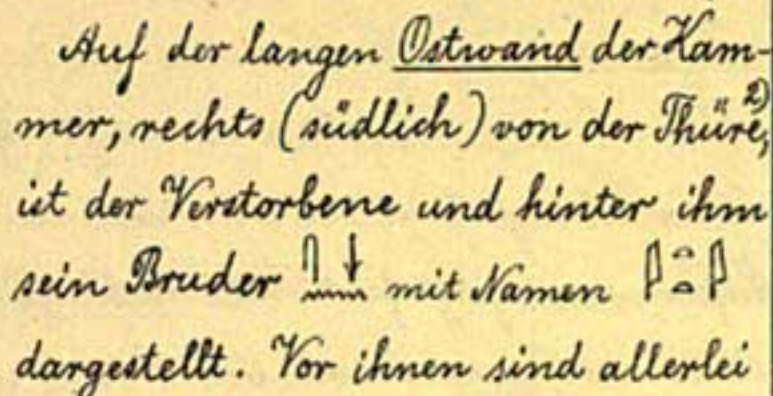 Auf der langen Ostwand der Kam-
mer, rechts (südlich) von der Thüre,²⁾
ist der Verstorbene und hinter ihm
sein Bruder mit Namen
dargestellt. Vor ihnen sind allerlei